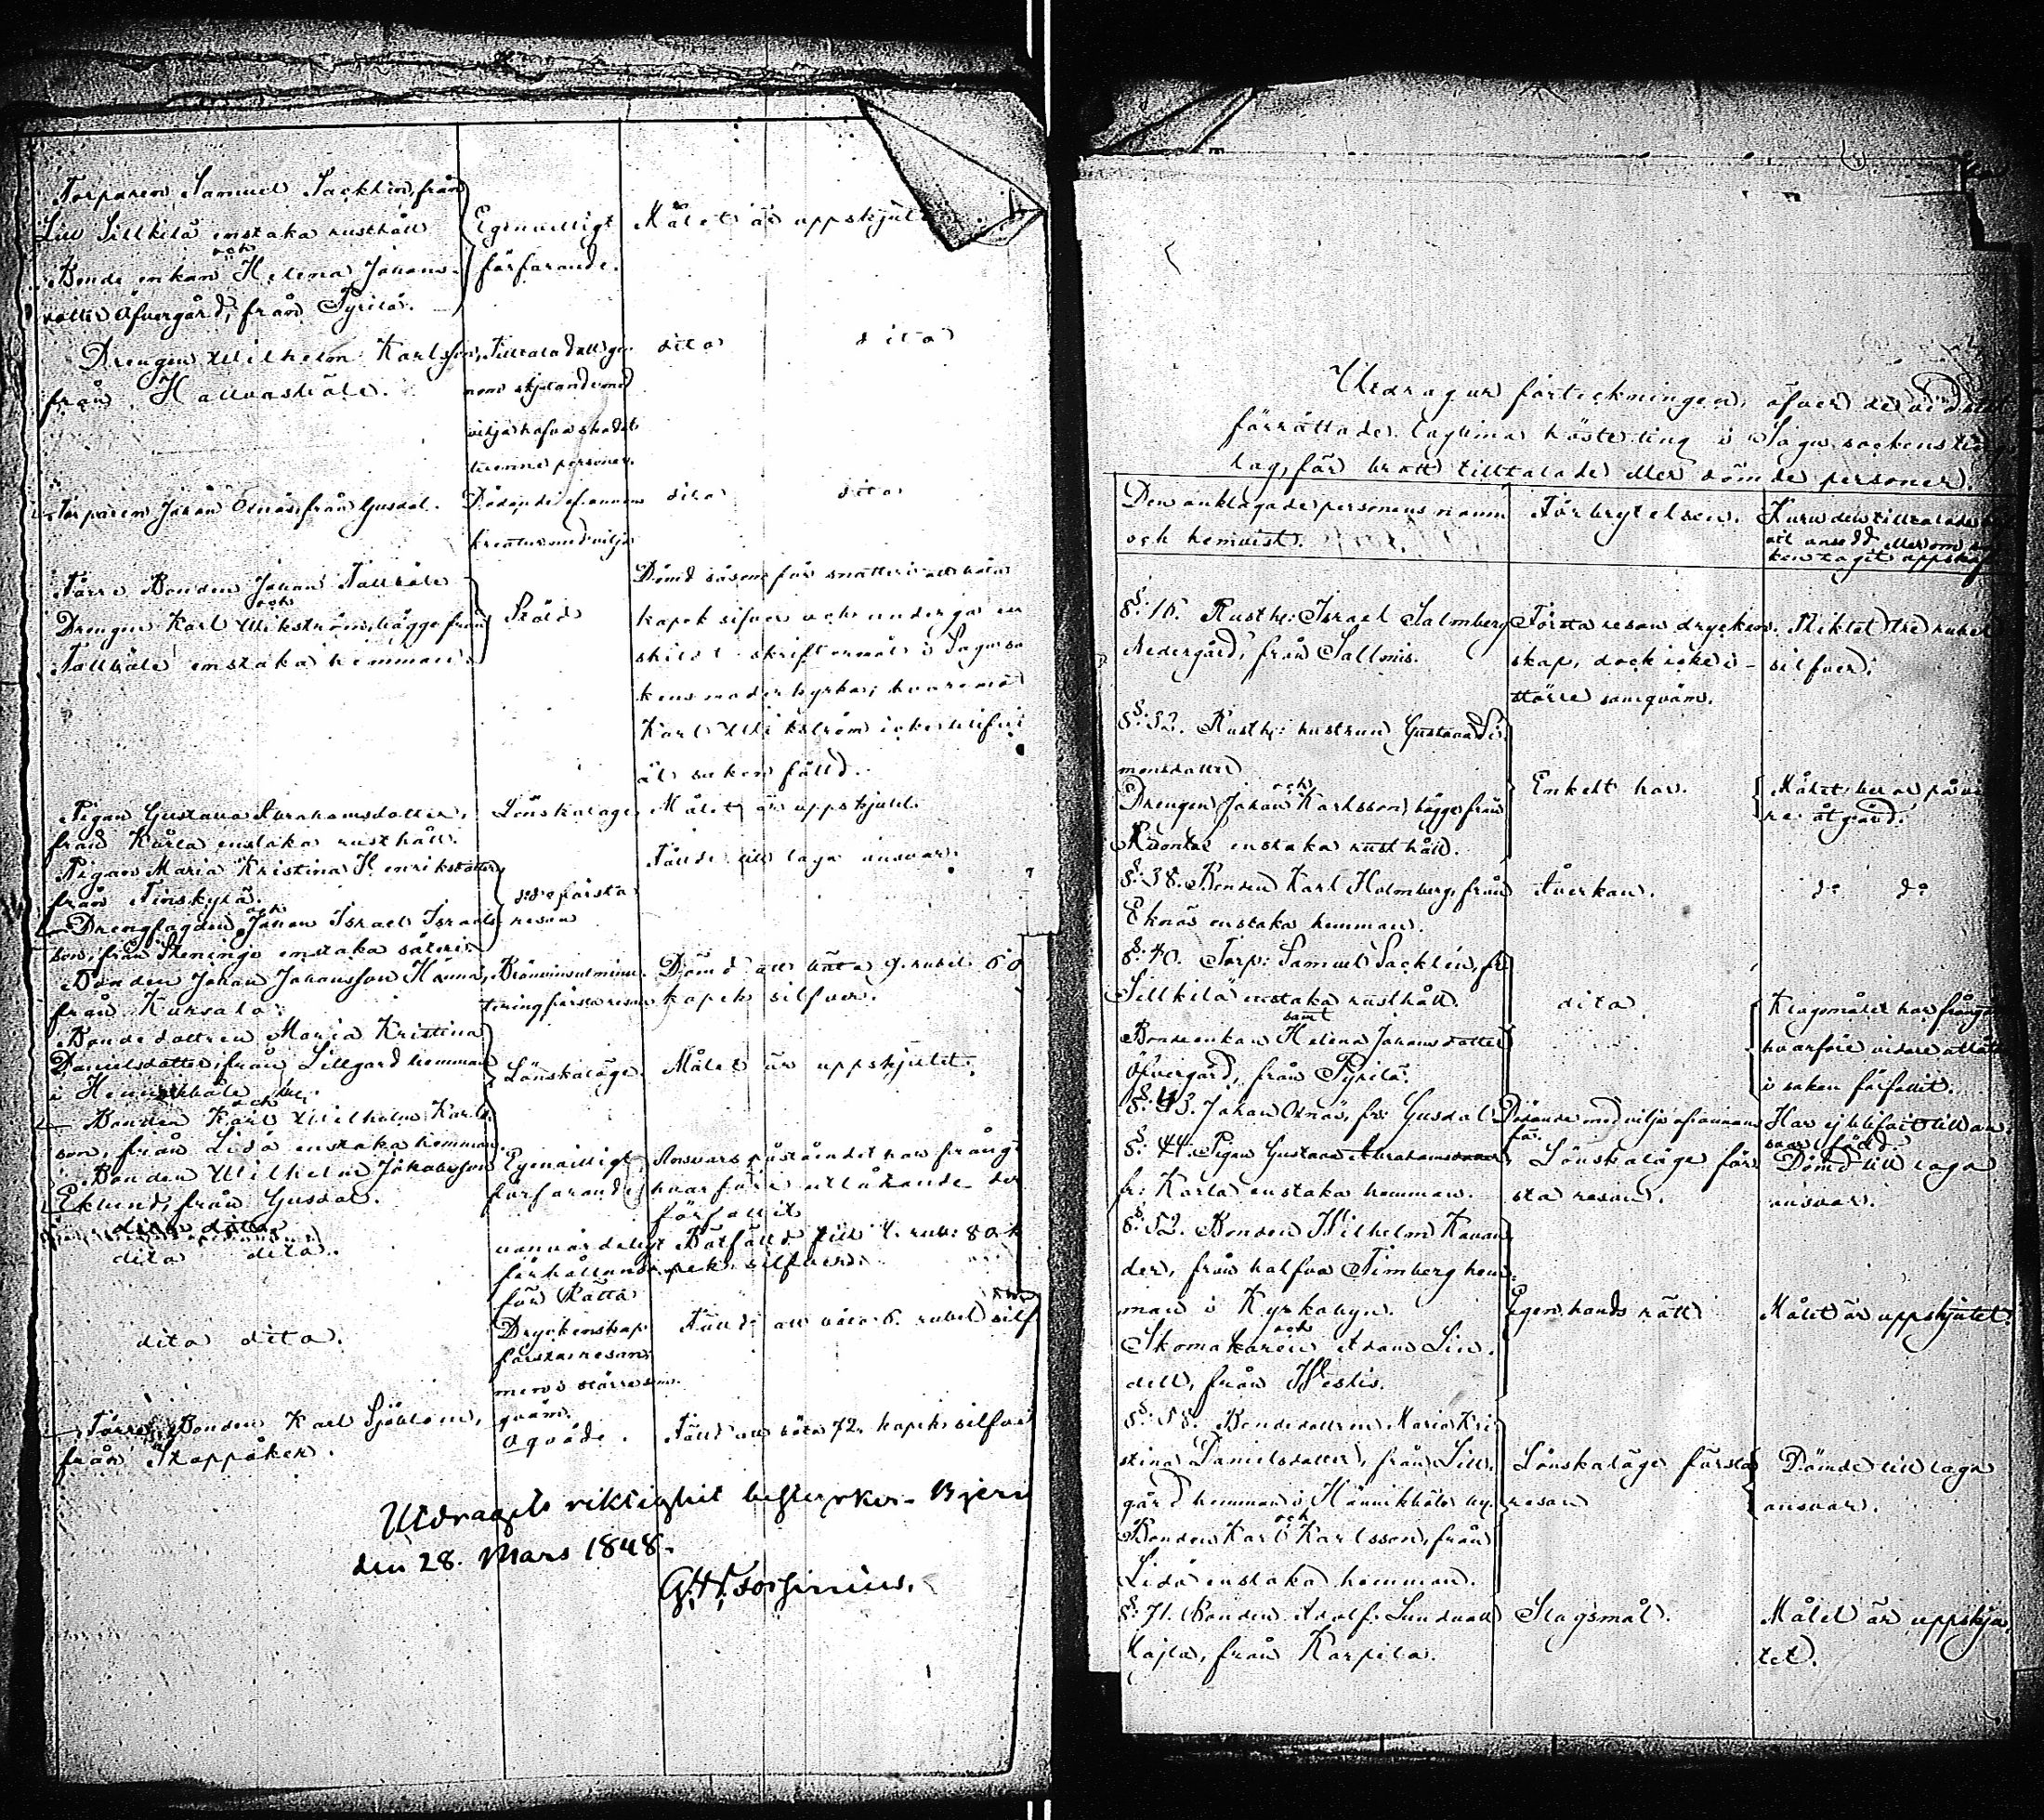 Torparen Samuel Sacklin, från
Lill Sillkilä enstaka rusthåll
och
Bonde enkan Helena Johans-
dotter Öfvergård, från Pyrilä.
Egenvilligt
förfarande.
Målet är uppskjut
Drengen Wilhelm Karlsson,
från Hallvasböle.
Tilltalad att ge-
nom skjutande med
vilja hafva skadat
tvenne personer.
dito dito
Torparen Johan Ödnäs, från Gusdal.
Dödande af annans
kreatur med vilja
dito dito
Förre Bonden Johan Tallböle
och
Drengen Karl Wikström, bägge från
Tallböle enstaka hemman.
Stöld
Dömd såsom för snatteri att böta
kopek silfver och undergå en
skildt skriftermål i Sagu so
kens moderkyrka; hvaremo
Karl Wikström icke blifvi
åt saken fälld.
Pigan Gustava Abrahamsdotter,
från Karla enstaka rusthåll.
Lönskaläge
Målet är uppskjutet.
Pigan Maria Kristina Henriksdotter
från Finskylä.
och
Drengfogden Johan Israel Israels-
son, från Steninge enstaka säteri.
första
resan
Fällde till laga ansvar.
Bonden Johan Johansson Hanna,
från Kuksala.
Bränvinsutminu-
tering första resan
Dömd att böta 9. rubel 60
kopek silfver.
Bondedottren Maria Kristina
Danielsdotter, från Lillgård hemman
i Hennikböle by.
och
Bonden Karl Wilhelm Karls-
son, från Lidö enstaka hemman.
Lönskaläge
Målet är uppskjutet.
Bonden Wilhelm Johansson
Eklund, från Gusdal.
Egenvilligt
förfarande
Ansvars påståendet har frångå
hvarföre utlåtande der
förfallit
dito dito.
vanvördeligt
förhållande
för Rätta
Botfälld till 4. rub: 80 k
pek silfver.
dito dito.
Dryckenskap
första resan,
men i större sam-
qväm.
Fälld att böta 6. rubel silf
Förre Bonden Karl Sjöblom,
från Stoppåker.
Oqväde.
Fälld att böta 72. kopek silfve
Utdragets riktighet bestyrker. Bjern
den 28. Mars 1848.
Utdrag ur förteckningen, öfver de vid
förrättade lagtima höste ting i Sagu sockens ting
lag, för brott tilltalade eller dömde personer.
Den anklagade personens namn
och hemvist.
Förbrytelsen.
Huru den tilltalade
vit ansedd eller om
ken tagit uppskof
§: 16. Rusth: Israel Salmberg
Nedergård, från Sallmis.
Första resan drycken-
skap, dock icke i
större samqväm.
Pliktat tre rubel
silfver.
§: 32. Rusth: hustrun Gustava Si-
monsdotter
och
Drengen Johan Karlsson, bägge från
enstaka rusthåll.
Enkelt hor.
Målet beror på vi
re åtgärd.
§: 38. Bonden Karl Holmberg, från
Eknäs enstaka hemman.
Åverkan.
d:o d:o
§: 40. Torp: Samuel Sacklén, fr:
Sillkilä enstaka rusthåll.
samt
Bondeenkan Helena Johansdotter
Öfvergård, från Pyrilä.
dito
Klagomålet har frångå
hvarföre vidare utlåta
i saken förfallit.
§: 43. Johan Ödnäs, fr: Gusdal
Dödande med vilja af annans
fä.
Har ej blifvit till an-
svar fälld.
§: 44. Pigan Gustava Abrahamsdotter
fr: Karla enstaka hemman.
Lönskaläge för-
sta resan.
Dömd till laga
ansvar.
§: 52. Bonden Wilhelm Kavan-
der, från halfva Timberg hem-
man i Kyrkobyn.
och
Skomakaren Adam Lin-
dell, från Westis.
Egen hands rätt
Målet är uppskjutet.
§: 58. Bondedottren Maria Kri-
stina Danielsdotter, från Lill-
gård hemman i Hännikböle by.
och
Bonden Karl Karlsson, från
Lidö enstaka hemman.
Lönskaläge första
resan
Dömde till laga
ansvar.
§: 71. Bonden Adolf Sundvall
Majla, från Karpila.
Slagsmål.
Målet är uppskju-
tet.